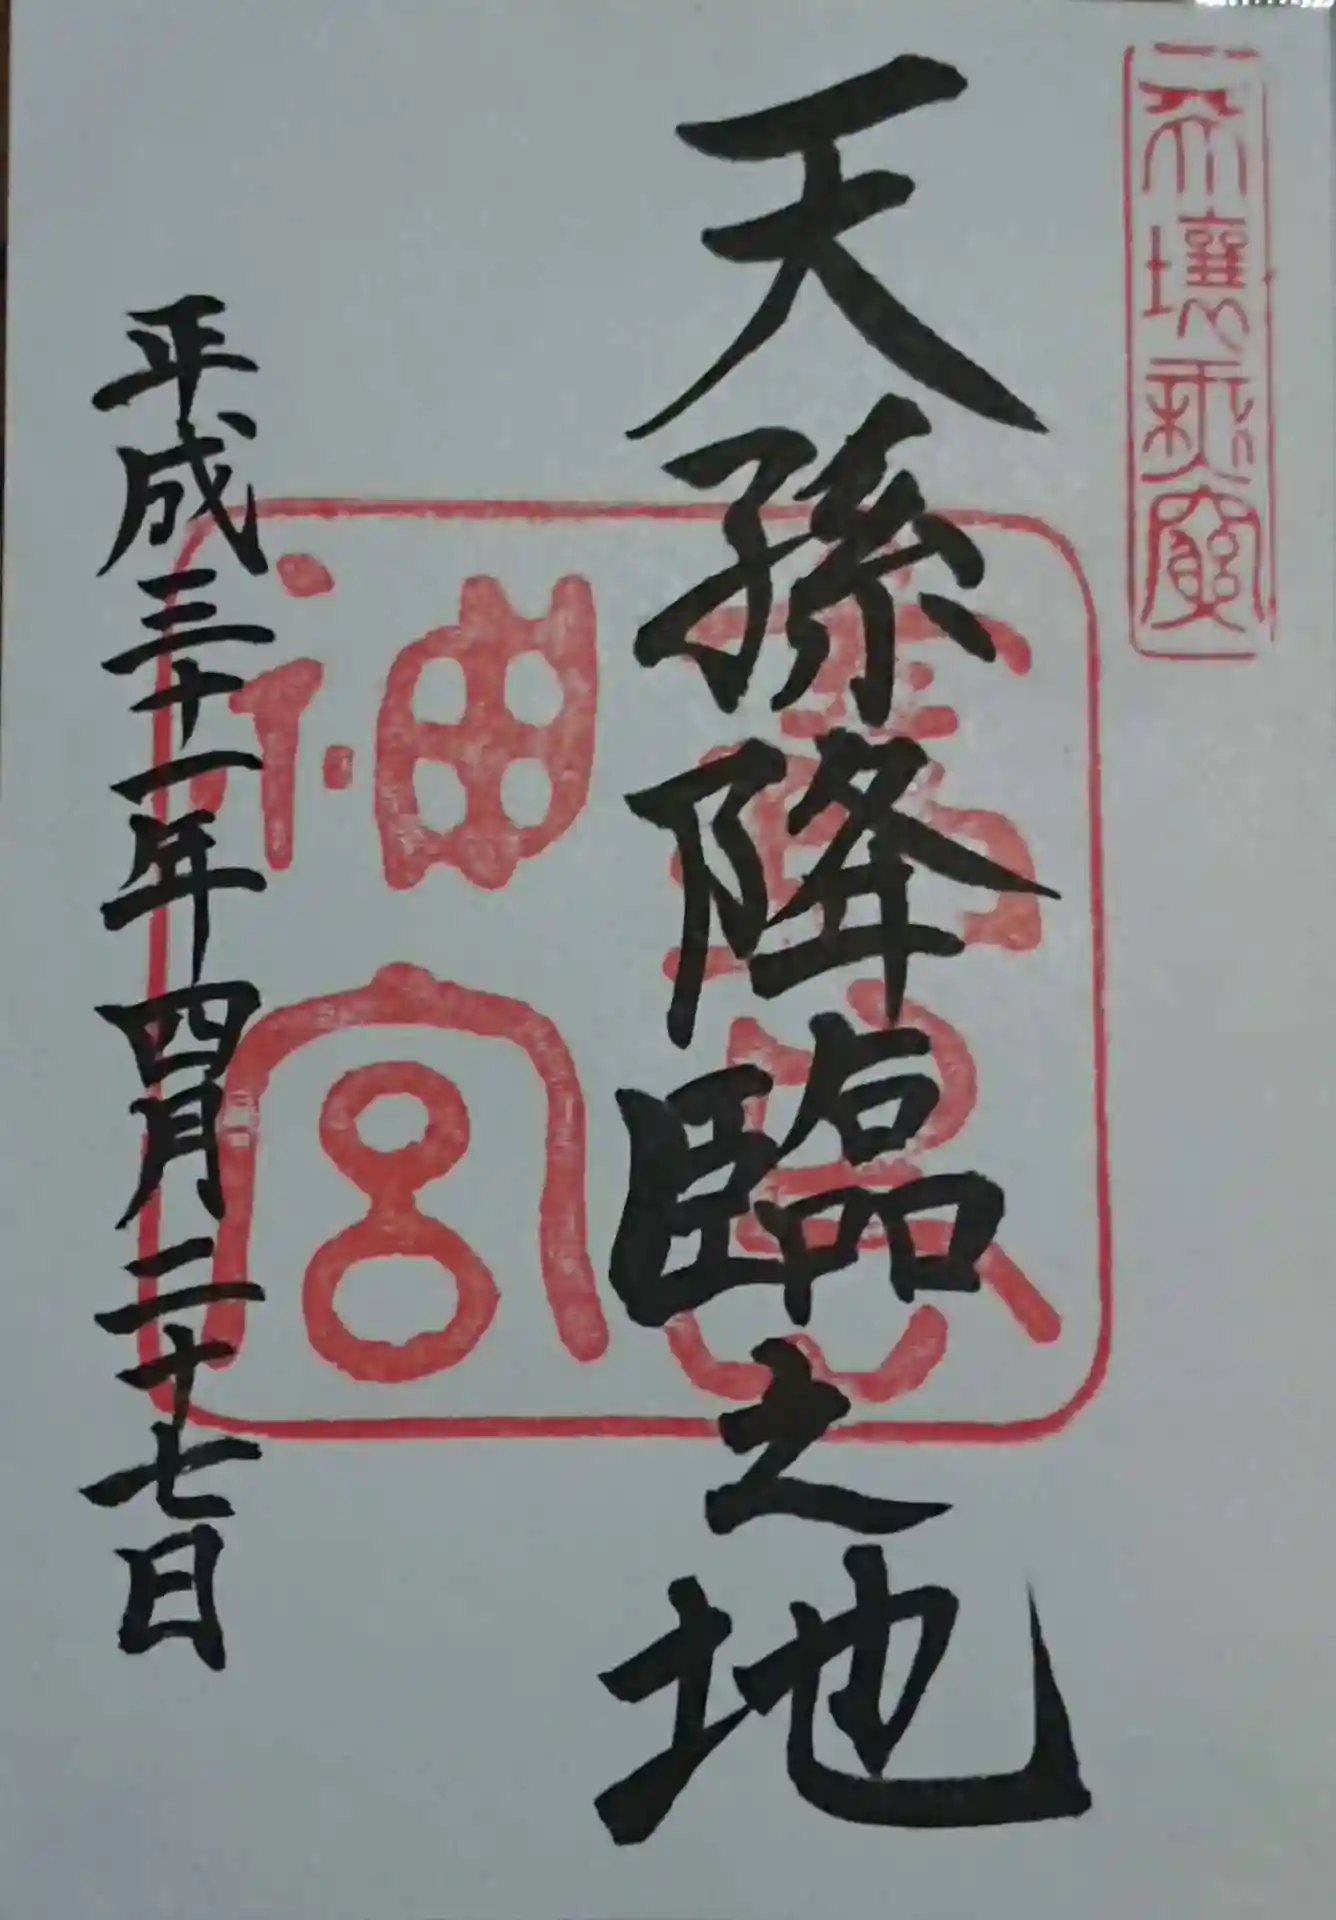 天壌無窮
天孫降臨之地
霧島神宮
平成三十一年四月二十七日